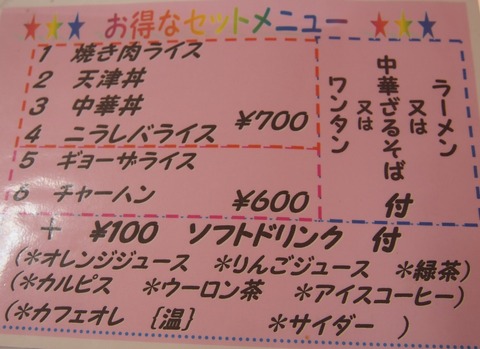 ★★★お得なセットメニュー★★★
1 焼き肉ライス
2 天津丼
3 中華丼
4 ニラレバライス ¥700
5 ギョーザライス
6 チャーハン ¥600
ラーメン
又は
中華ざるそば
又は
ワンタン
付
＋ ¥100 ソフトドリンク 付
(＊オレンジジュース ＊りんごジュース ＊緑茶)
(＊カルピス ＊ウーロン茶 ＊アイスコーヒー)
(＊カフェオレ {温} ＊サイダー )